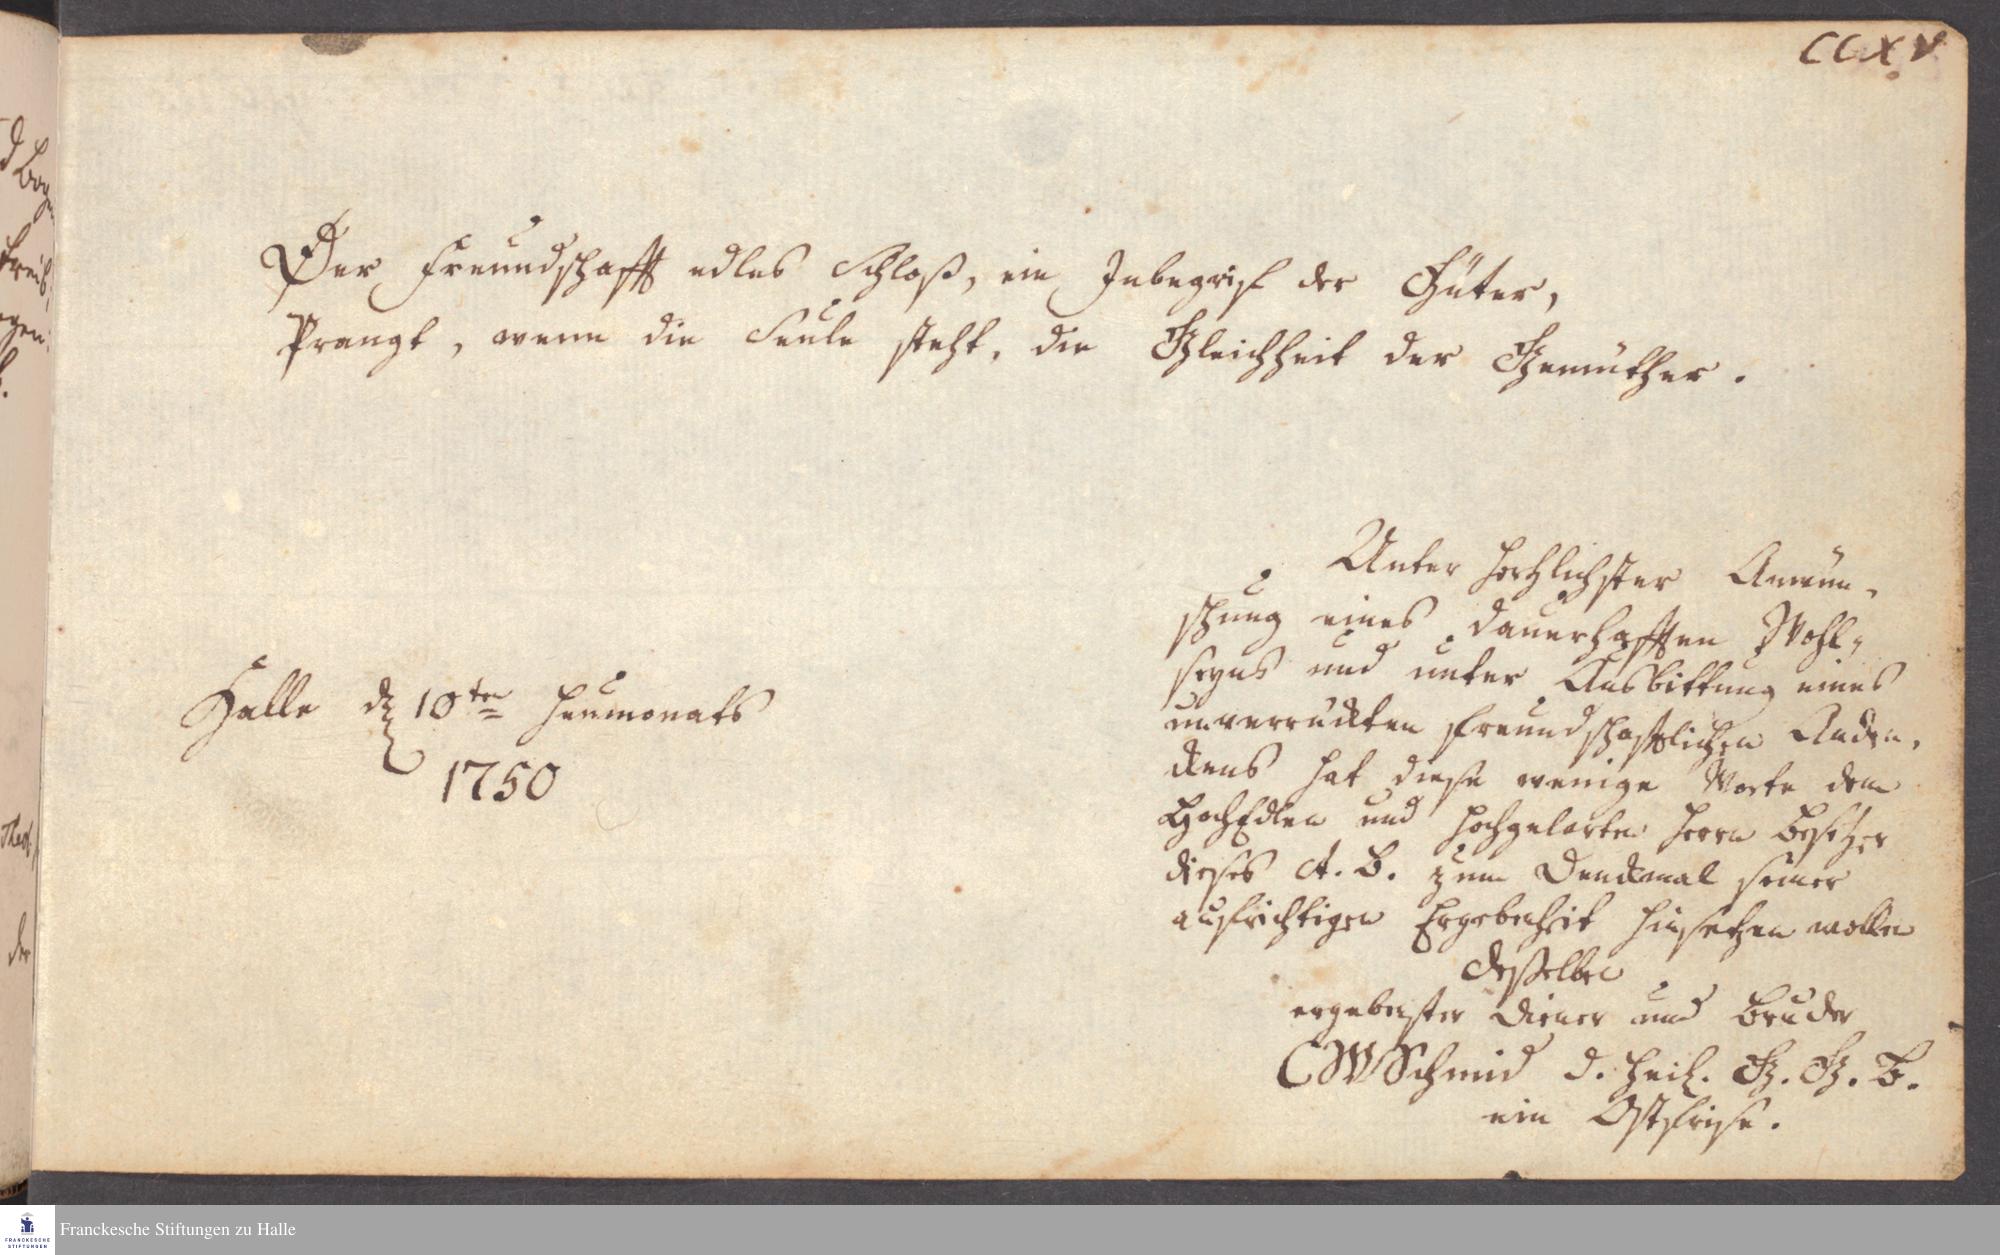 CCXV
Der Freundschafft edles Schloß, ein Inbegrif der Güter,
Prangt, wenn die Seule steht, die Gleichheit der Gemüther.
Halle d 10ten Heumonats
1750
Unter herzlichster Anwün-
schung eines dauerhafften Wohl-
seyns und unter Ausbittung eines
unverruckten freundschaftlichen Anden-
ckens hat diese wenige Worte dem
HochEdlen und Hochgelarten Herrn Besitzer
dieses St. B. zum Denckmal seiner
aufrichtigen Ergebenheit hinsetzen wollen
desselben
ergebenster Diener und Bruder
CWSchmid d. Heil. G. G. B.
ein Ostfriese.
Theol.
der
FRANCKESCHE
STIFTUNGEN
Franckesche Stiftungen zu Halle